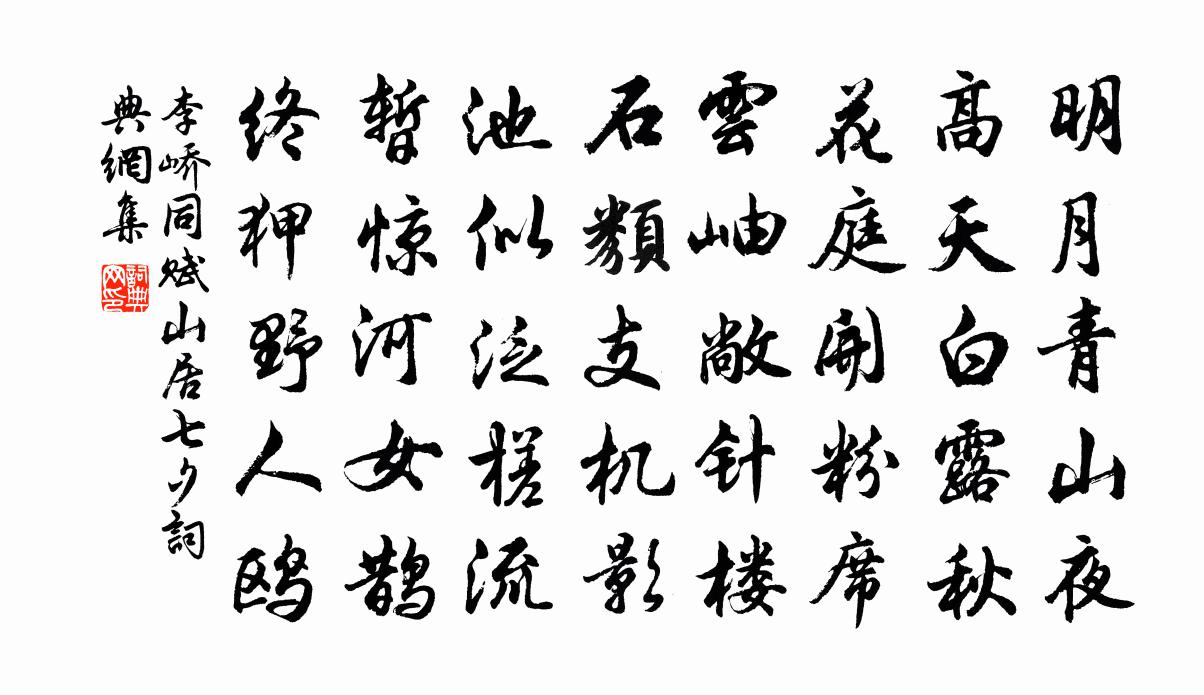 明月青山夜
高天白露秋
花庭開粉席
雲岫敞针楼
石類支机影
池似泛槎流
暫惊河女鹊
终狎野人鸥
李嶠同赋山居七夕詞
典網集
詞典
网印